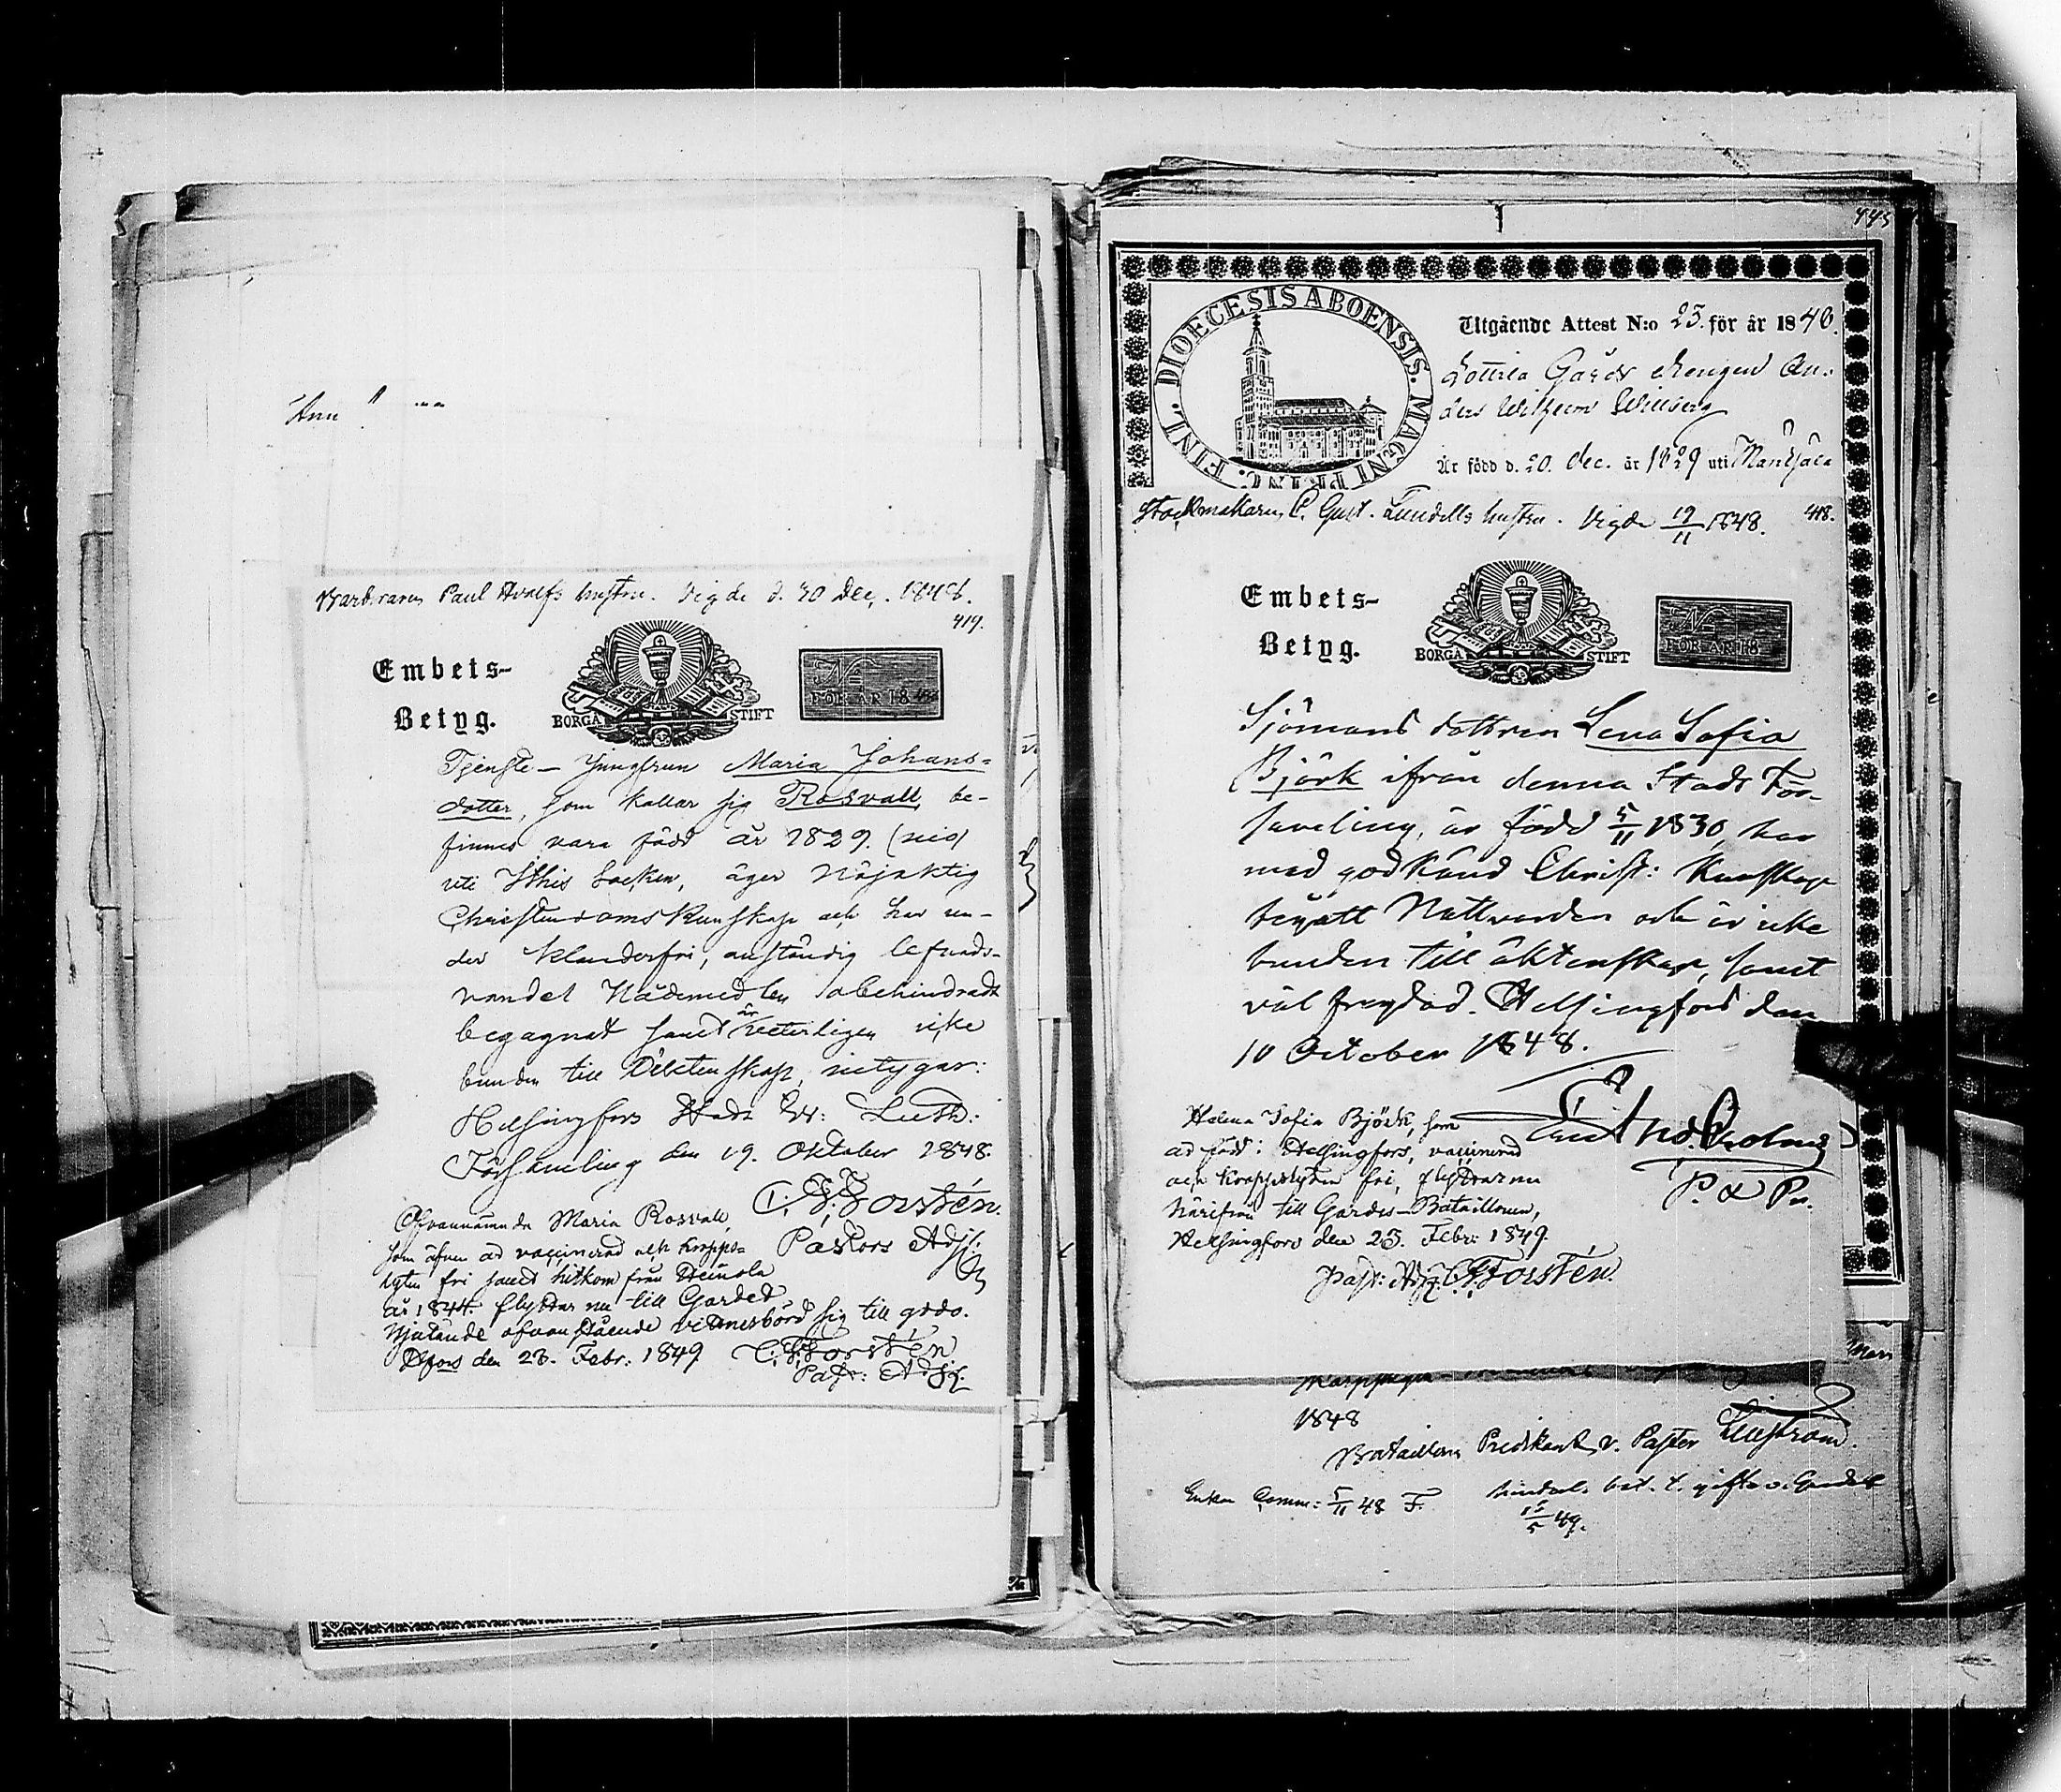 Barberaren Paul Avolfs hustru. Vigde d. 30 Dec. 1848.
419.
Embets-
Betyg.
BORGÅ STIFT
N
FÖR ÅR 18
Tjenste-Jungfrun Maria Johans-
dotter, som kallar sig Rosvall, be-
finnes vara född år 1829. (nio)
uti Ithis Socken, äger Nöjaktig
Christendomskunskap och har un-
der klanderfri, anständig lefnads-
vandel Nådemedlen obehindradt
begagnat samt är veterligen icke
bunden till Äktenskap, intygar:
Helsingfors Stads Ev: Luth:
Församling den 19. Oktober 1848.
C. F. Forstén.
Pastors Adj:
Ofvannämnda Maria Rosvall,
som äfven är vaccinerad och kopps-
lyten fri samt hitkom från Heinola
år 1844. flyttar nu till Gardet
Njutande ofvanstående vitnesbörd sig till godo.
Hfors den 23. Febr: 1849 C. F. Forstén
Past: Adj:
443
DIOECESIS ABOENSIS. MAGNI PRINC. FINL.
Utgående Attest N:o 23. för år 1840.
Lottila Gårds drengen An-
ders Wilhelm Willberg
Är född d. 20. dec. år 1829 uti Mäntsälä
Stockmakaren C. Gust. Lundells hustru. Vigde 19/11 1848.
418.
Embets-
Betyg.
BORGÅ STIFT
N
FÖR ÅR 18
Sjömans dottren Lena Sofia
Björk ifrån denna Stads För-
samling, är född 5/11 1830, har
med godkänd Christ: kunskap
begått Nattvarden och är icke
bunden till äktenskap, samt
väl frejdad. Helsingfors den
10 October 1848.
P. & Pr.
Helena Sofia Björk, som
är född i Helsingfors, vaccinerad
och koppslyten fri, flyttar nu
härifrån till Gardes-Bataillonen,
Helsingfors den 23. Febr: 1849.
Past: Adj: C. F. Forstén.
1848
Bataillons Predikant v. Pastor
Comm: 5/11 48 F.
15/5 49.